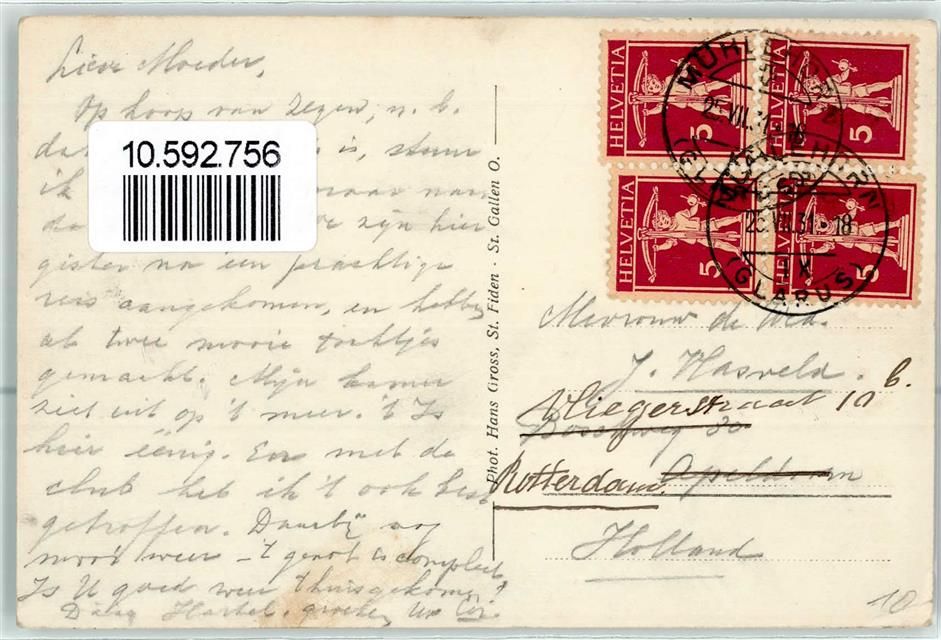 Lieve Moeder,
Op hoop van zegen, n.b.
10.592.756
is, stuur
ik maar naar
zijn hier
gister na een prachtige
reis aangekomen, en hebben
al twee mooie tochtjes
gemaakt. Mijn kamer
ziet uit op 't meer. 't Is
hier éénig. En met de
club heb ik 't ook best
getroffen. Daarbij nog
mooi weer - 't genot is compleet
Is U goed weer thuisgekomen?
Dag Hartel. groeten Uw
Phot. Hans Gross, St. Fiden - St. Gallen O.
HELVETIA 5
HELVETIA 5
HELVETIA 5
HELVETIA 5
MÜHLEHORN
25.VII.31.-18
(GLARUS)
MÜHLEHORN
25.VII.31.-18
IX
(GLARUS)
Mevrouw de Wed.
J. Hasveld.
Vliegerstraat 10 b.
Rotterdam. Apeldoorn
Holland
10